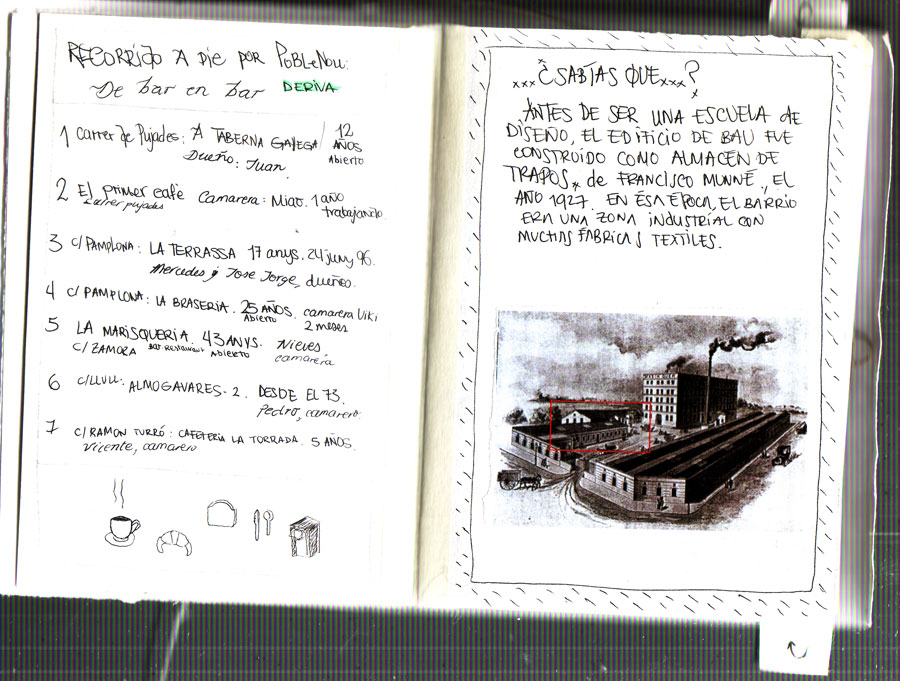 RECORRIDO A PIE POR POBLENOU:
De bar en bar DERIVA
1 Carrer de Pujades: A TABERNA GALEGA / 12 AÑOS Abierto
Dueño: Juan
2 El primer café Camarera: Miao. 1 año trabajando
carrer pujades
3 C/PAMPLONA: LA TERRASSA 17 anys. 24 juny 96.
Mercedes y Jose Jorge, dueños.
4 C/ PAMPLONA: LA BRASERIA. 25 AÑOS. camarera Viki
Abierto 2 meses
5 LA MARISQUERIA. 43 ANYS. Nieves
C/ZAMORA Bar-Restaurant Abierto camarera
6 C/LLULL: ALMOGAVARES-2. DESDE EL 73.
Pedro, camarero
7 C/RAMON TURRÓ: CAFETERIA LA TORRADA. 5 AÑOS.
Vicente, camarero
xxx ¿SABÍAS QUE xxx?
ANTES DE SER UNA ESCUELA de
DISEÑO, EL EDIFICIO DE BAU FUE
CONSTRUÍDO COMO ALMACÉN DE
TRAPOS, de FRANCISCO MUNNÉ, EL
AÑO 1927. EN ÉSA ÉPOCA, EL BARRIO
ERA UNA ZONA INDUSTRIAL CON
MUCHAS FÁBRICAS TEXTILES.